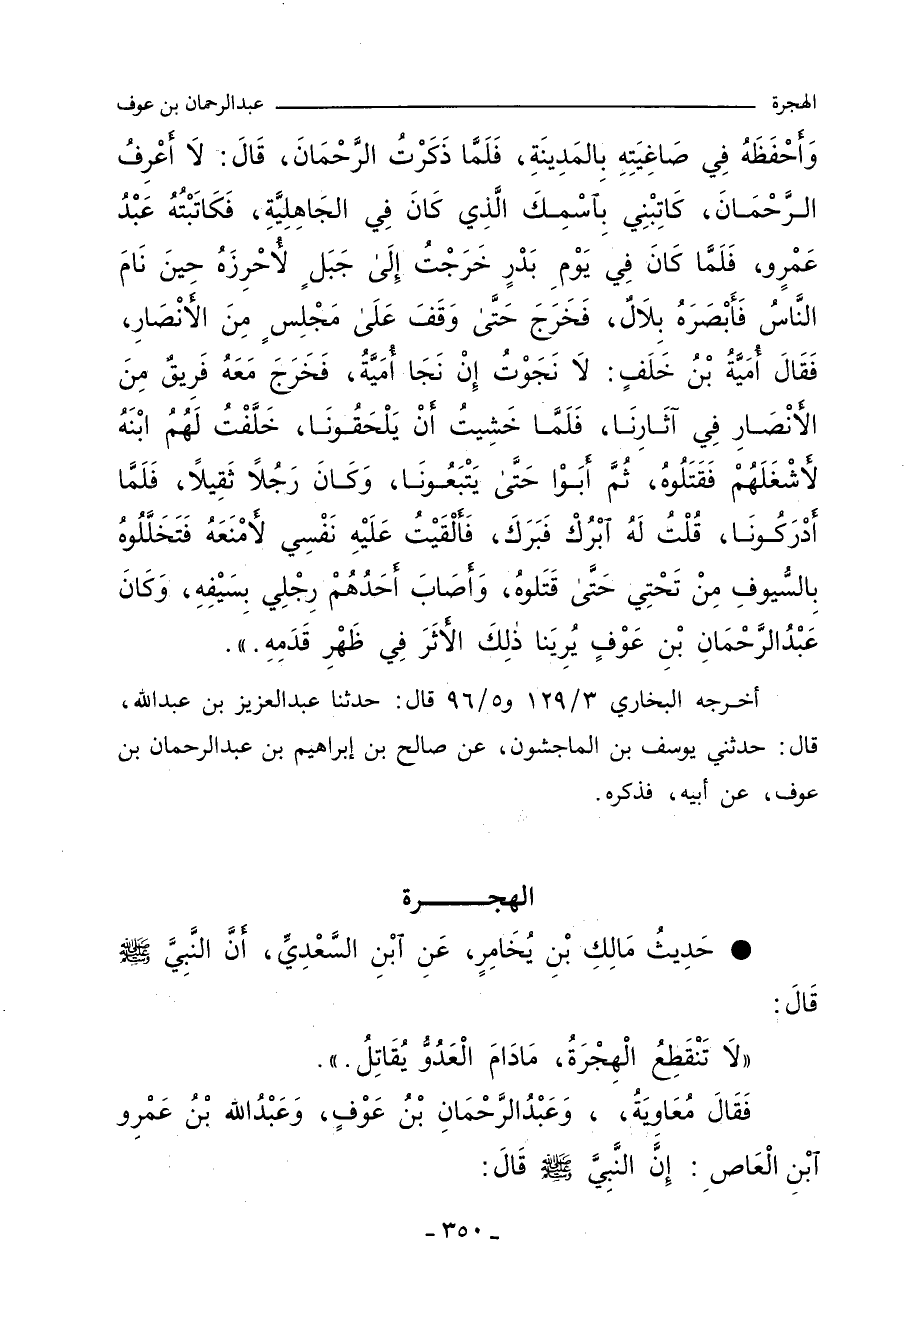 الهجرة ــــــــــــــــــــــــ عبدالرحمان بن عوف
وَأَحْفَظَهُ فِي صَاغِيَتِهِ بِالمَدِينَةِ، فَلَمَّا ذَكَرْتُ الرَّحْمَانَ، قَالَ: لَا أَعْرِفُ
الرَّحْمَانَ، كَاتِبْنِي بِآسْمِكَ الَّذِي كَانَ فِي الجَاهِلِيَّةِ، فَكَاتَبْتُهُ عَبْدُ
عَمْرٍو، فَلَمَّا كَانَ فِي يَوْمِ بَدْرٍ خَرَجْتُ إِلَىٰ جَبَلٍ لأُحْرِزَهُ حِينَ نَامَ
النَّاسُ فَأَبْصَرَهُ بِلَالٌ، فَخَرَجَ حَتَّىٰ وَقَفَ عَلَىٰ مَجْلِسٍ مِنَ الأَنْصَارِ،
فَقَالَ أُمَيَّةُ بْنُ خَلَفٍ: لَا نَجَوْتُ إِنْ نَجَا أُمَيَّةُ، فَخَرَجَ مَعَهُ فَرِيقٌ مِنَ
الأَنْصَارِ فِي آثَارِنَا، فَلَمَّا خَشِيتُ أَنْ يَلْحَقُونَا، خَلَّفْتُ لَهُمُ ابْنَهُ
لأَشْغَلَهُمْ فَقَتَلُوهُ، ثُمَّ أَبَوْا حَتَّىٰ يَتْبَعُونَا، وَكَانَ رَجُلاً ثَقِيلاً، فَلَمَّا
أَدْرَكُونَا، قُلْتُ لَهُ آبْرُكْ فَبَرَكَ، فَأَلْقَيْتُ عَلَيْهِ نَفْسِي لأَمْنَعَهُ فَتَخَلَّلُوهُ
بِالسُّيوفِ مِنْ تَحْتِي حَتَّىٰ قَتَلوهُ، وَأَصَابَ أَحَدُهُمْ رِجْلِي بِسَيْفِهِ، وَكَانَ
عَبْدُالرَّحْمَانِ بْنِ عَوْفٍ يُرِينَا ذٰلِكَ الأَثَرَ فِي ظَهْرِ قَدَمِهِ.».
أخرجه البخاري ١٢٩/٣ و٩٦/٥ قال: حدثنا عبدالعزيز بن عبدالله،
قال: حدثني يوسف بن الماجشون، عن صالح بن إبراهيم بن عبدالرحمان بن
عوف، عن أبيه، فذكره.
الهجـــــرة
● حَدِيثُ مَالِكِ بْنِ يُخَامِرٍ، عَنِ آبْنِ السَّعْدِيِّ، أَنَّ النَّبِيَّ ﷺ
قَالَ:
«لَا تَنْقَطِعُ الْهِجْرَةُ، مَادَامَ الْعَدُوُّ يُقَاتِلُ.».
فَقَالَ مُعَاوِيَةُ، ، وَعَبْدُالرَّحْمَانِ بْنُ عَوْفٍ، وَعَبْدُالله بْنُ عَمْرِو
آبْنِ الْعَاصِ: إِنَّ النَّبِيَّ ﷺ قَالَ:
- ٣٥٠ -